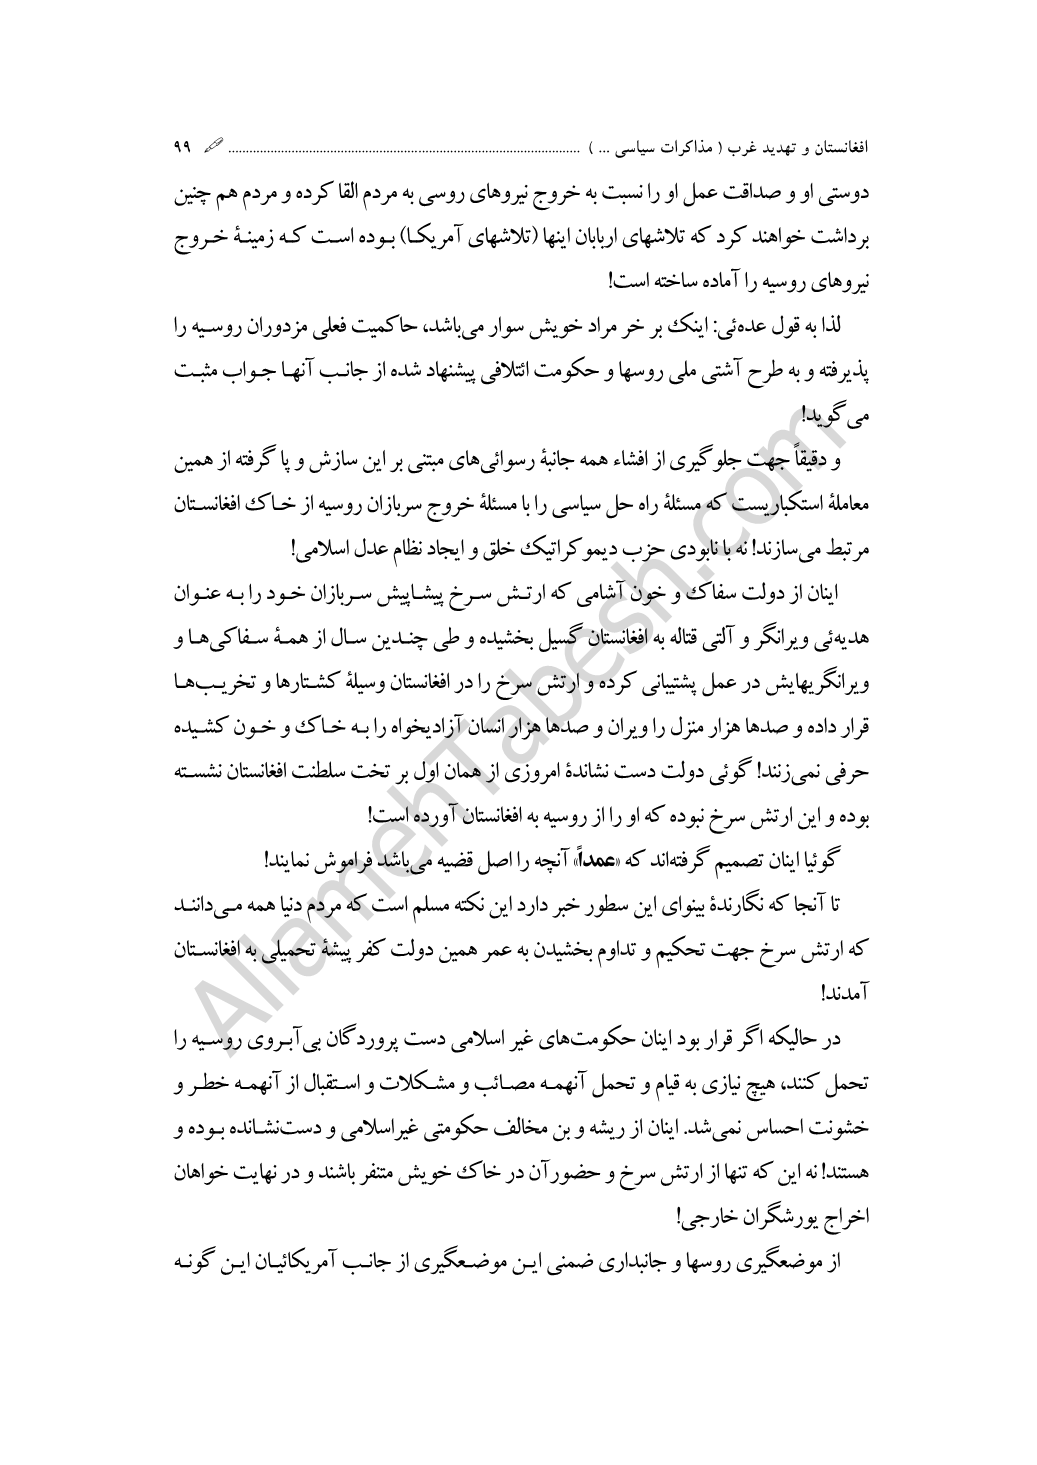 افغانستان و تهدید غرب ( مذاکرات سیاسی ... ) ..................................................................................................... ۹۹
دوستی او و صداقت عمل او را نسبت به خروج نیروهای روسی به مردم القا کرده و مردم هم چنین
برداشت خواهند کرد که تلاشهای اربابان اینها (تلاشهای آمریکا) بوده است که زمینهٔ خروج
نیروهای روسیه را آماده ساخته است!
لذا به قول عده‌ئی: اینک بر خر مراد خویش سوار می‌باشد، حاکمیت فعلی مزدوران روسیه را
پذیرفته و به طرح آشتی ملی روسها و حکومت ائتلافی پیشنهاد شده از جانب آنها جواب مثبت
می‌گوید!
و دقیقاً جهت جلوگیری از افشاء همه جانبهٔ رسوائی‌های مبتنی بر این سازش و پا گرفته از همین
معاملهٔ استکباریست که مسئلهٔ راه حل سیاسی را با مسئلهٔ خروج سربازان روسیه از خاک افغانستان
مرتبط می‌سازند! نه با نابودی حزب دیموکراتیک خلق و ایجاد نظام عدل اسلامی!
اینان از دولت سفاک و خون آشامی که ارتش سرخ پیشاپیش سربازان خود را به عنوان
هدیه‌ئی ویرانگر و آلتی قتاله به افغانستان گسیل بخشیده و طی چندین سال از همهٔ سفاکی‌ها و
ویرانگریهایش در عمل پشتیبانی کرده و ارتش سرخ را در افغانستان وسیلهٔ کشتارها و تخریب‌ها
قرار داده و صدها هزار منزل را ویران و صدها هزار انسان آزادیخواه را به خاک و خون کشیده
حرفی نمی‌زنند! گوئی دولت دست نشاندهٔ امروزی از همان اول بر تخت سلطنت افغانستان نشسته
بوده و این ارتش سرخ نبوده که او را از روسیه به افغانستان آورده است!
گوئیا اینان تصمیم گرفته‌اند که «عمداً» آنچه را اصل قضیه می‌باشد فراموش نمایند!
تا آنجا که نگارندهٔ بینوای این سطور خبر دارد این نکته مسلم است که مردم دنیا همه می‌دانند
که ارتش سرخ جهت تحکیم و تداوم بخشیدن به عمر همین دولت کفر پیشهٔ تحمیلی به افغانستان
آمدند!
در حالیکه اگر قرار بود اینان حکومت‌های غیر اسلامی دست پروردگان بی‌آبروی روسیه را
تحمل کنند، هیچ نیازی به قیام و تحمل آنهمه مصائب و مشکلات و استقبال از آنهمه خطر و
خشونت احساس نمی‌شد. اینان از ریشه و بن مخالف حکومتی غیراسلامی و دست‌نشانده بوده و
هستند! نه این که تنها از ارتش سرخ و حضورآن در خاک خویش متنفر باشند و در نهایت خواهان
اخراج یورشگران خارجی!
از موضعگیری روسها و جانبداری ضمنی این موضعگیری از جانب آمریکائیان این گونه
AllamehTabesh.com